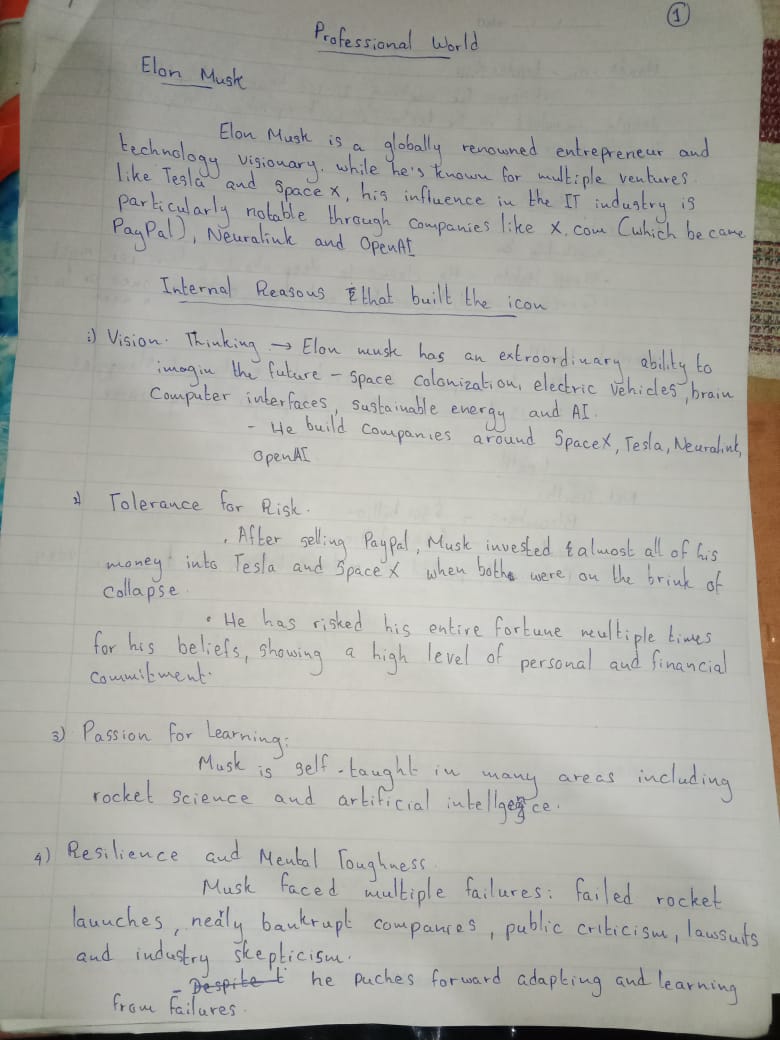 1
Professional World
Elon Musk
Elon Musk is a globally renowned entrepreneur and
technology visionary. while he's known for multiple ventures
like Tesla and Space X, his influence in the IT industry is
particularly notable through companies like X.com (which became
PayPal), Neuralink and OpenAI
Internal Reasons that built the icon
i) Vision. Thinking → Elon musk has an extroordinary ability to
imagin the future - space colonization, electric vehicles, brain
Computer interfaces, sustainable energy and AI.
- He build companies around SpaceX, Tesla, Neuralink,
OpenAI
2) Tolerance for Risk.
. After selling Paypal, Musk invested almost all of his
money into Tesla and Space X when both were on the brink of
collapse.
• He has risked his entire fortune multiple times
for his beliefs, showing a high level of personal and financial
commitment.
3) Passion for Learning:
Musk is self-taught in many areas including
rocket science and artificial intellgence.
4) Resilience and Mental Toughness.
Musk faced multiple failures: failed rocket
launches, nearly bankrupt companies, public criticism, lawsuits
and industry skepticism.
- Despite t he puches forward adapting and learning
from failures.